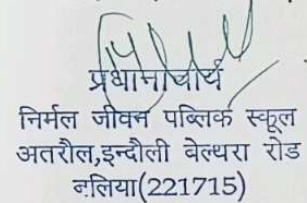 प्रधानाचार्य
निर्मल जीवन पब्लिक स्कूल
अतरौल,इन्दौली बेल्थरा रोड
बलिया(221715)